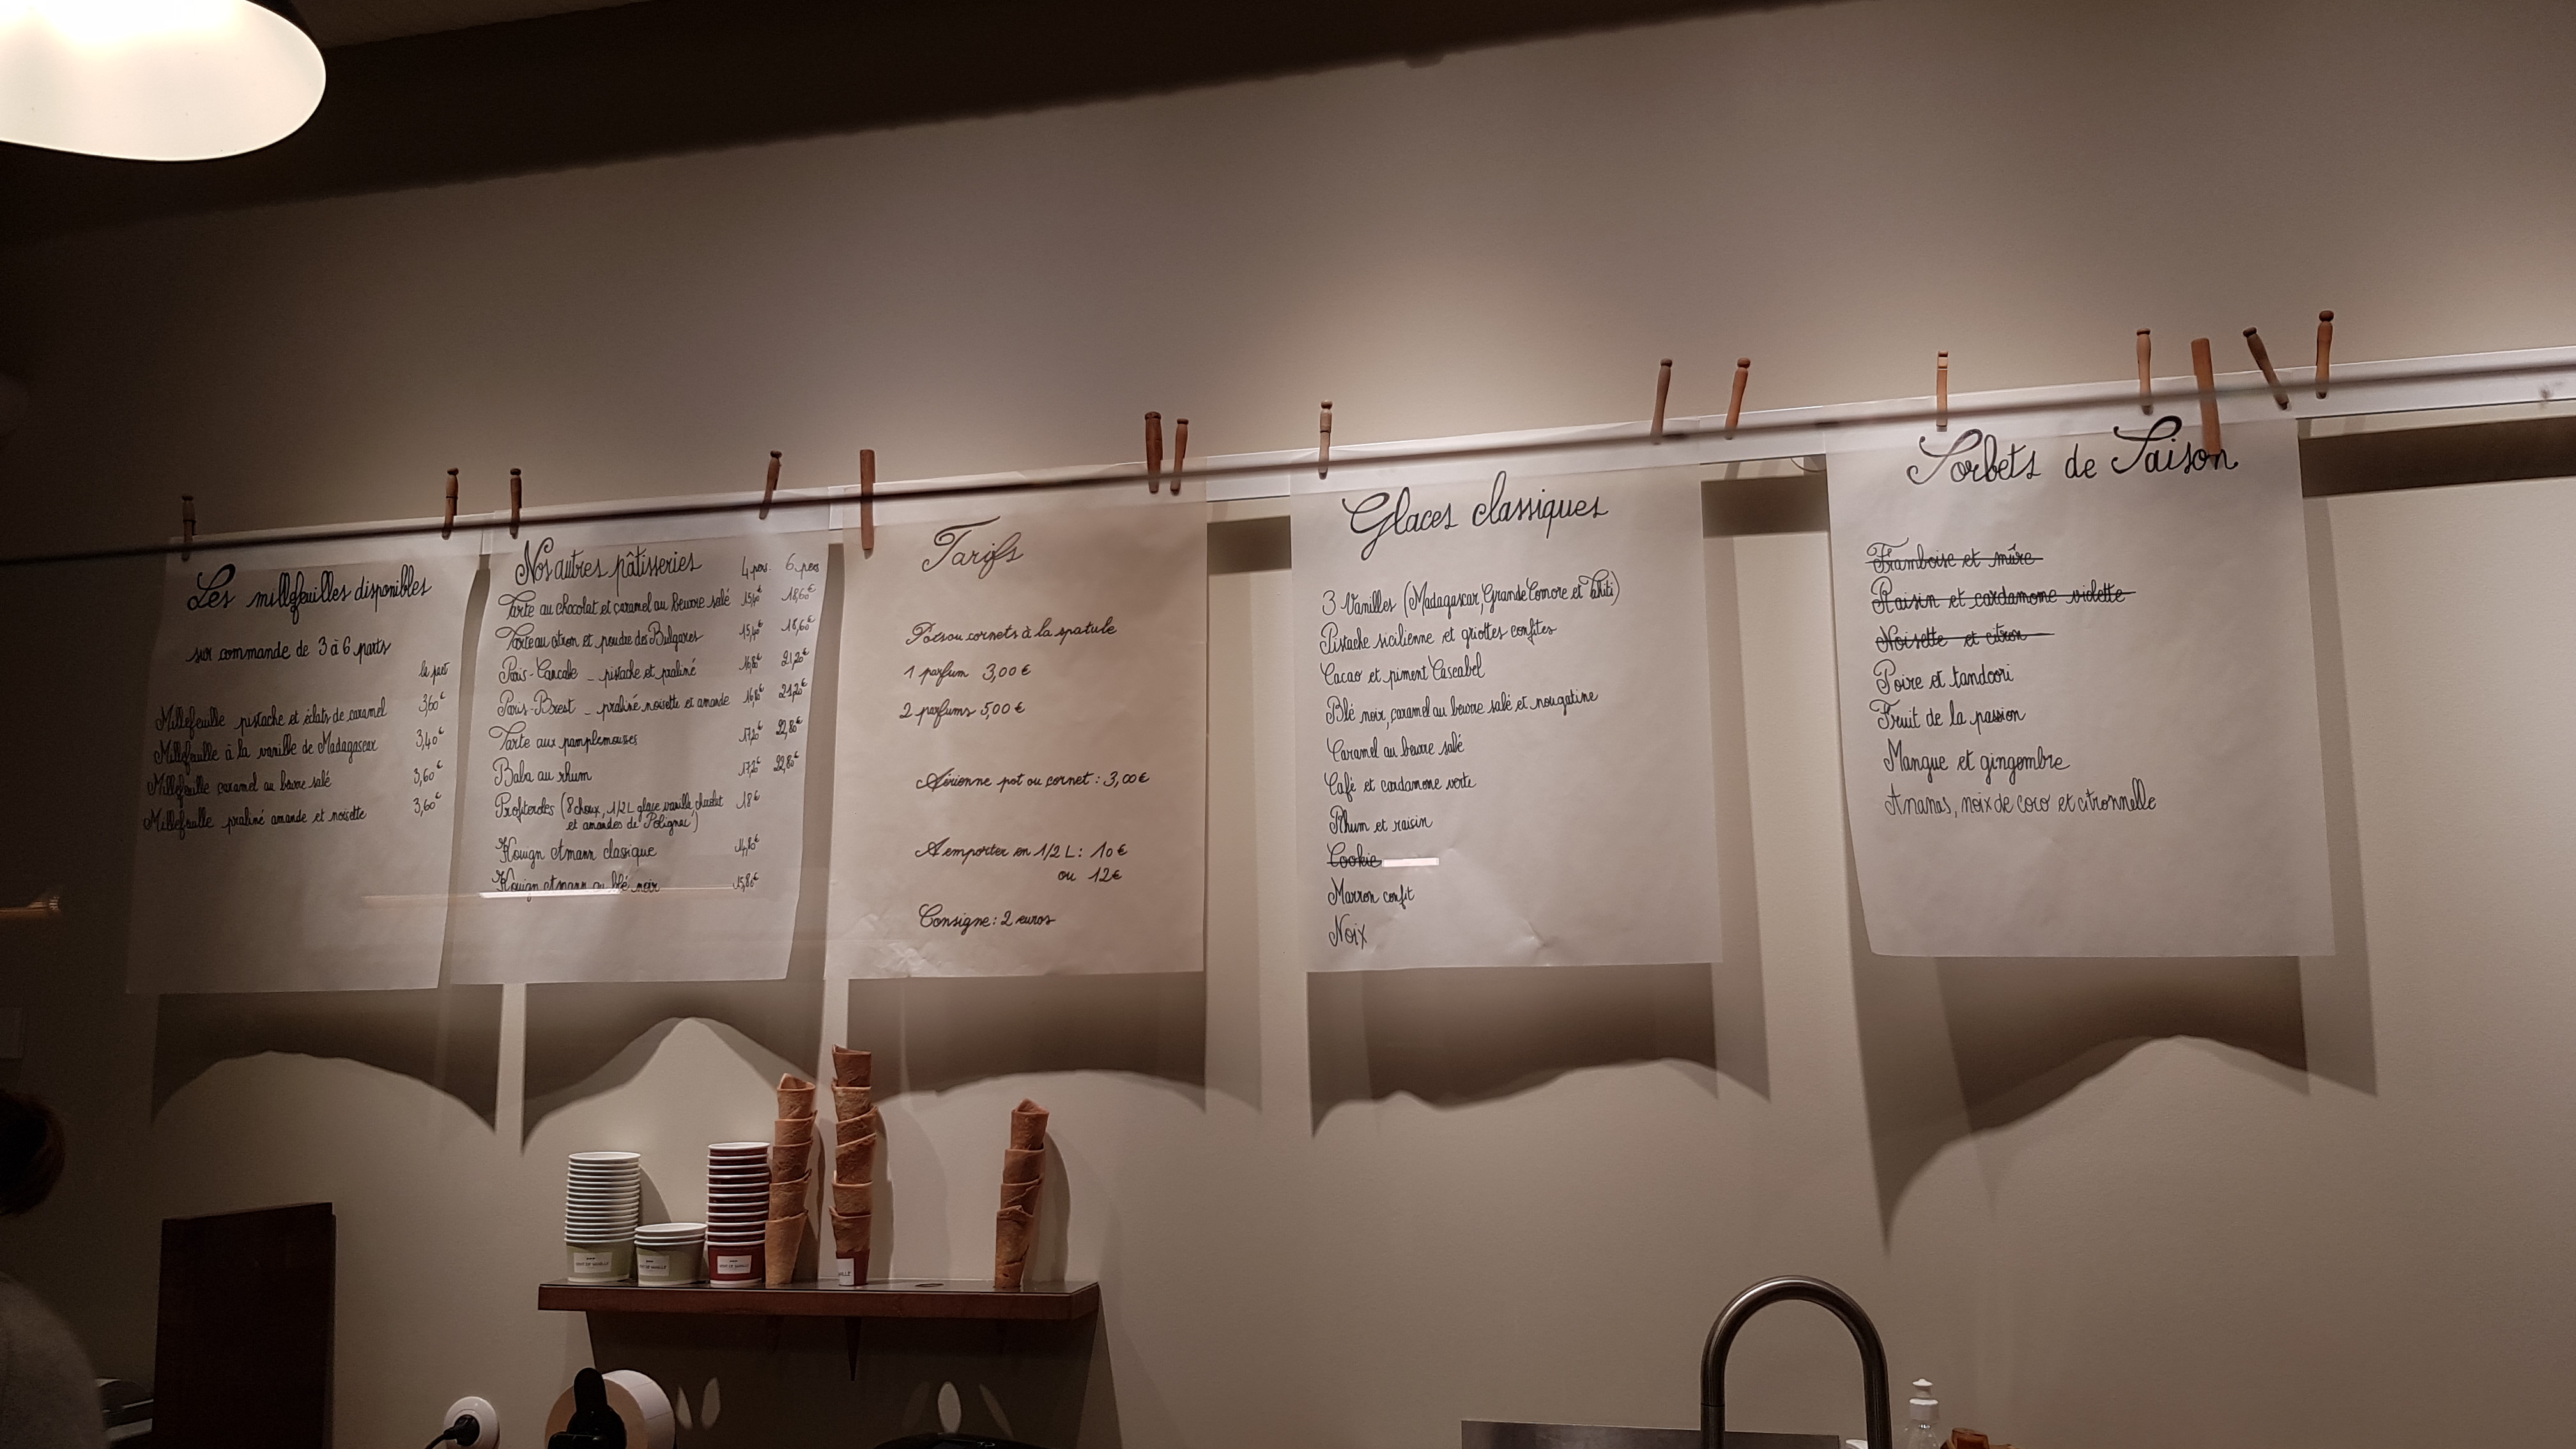 Les millefeuilles disponibles
sur commande de 3 à 6 parts
la part
Millefeuille pistache et éclats de caramel 3,60€
Millefeuille à la vanille de Madagascar 3,40€
Millefeuille caramel au beurre salé 3,60€
Millefeuille praliné amande et noisette 3,60€
Nos autres pâtisseries 4 pers 6 pers
Tarte au chocolat et caramel au beurre salé 15,40€ 18,60€
Tarte au citron et poudre des Bulgares 15,40€ 18,60€
Paris-Cancale _ pistache et praliné 16,80€ 21,20€
Paris-Brest _ praliné noisette et amande 16,80€ 21,20€
Tarte aux pamplemousses 17,20€ 22,80€
Baba au rhum 17,20€ 22,80€
Profiteroles (8 choux, 1/2 L glace vanille, chocolat 18€
et amandes de Polignac)
Kouign Amann classique 14,80€
Kouign Amann au blé noir 15,80€
Tarifs
Pots ou cornets à la spatule
1 parfum 3,00€
2 parfums 5,00€
Aérienne pot ou cornet : 3,00€
A emporter en 1/2 L : 10€
ou 12€
Consigne : 2 euros
Glaces classiques
3 Vanilles (Madagascar, Grande Comore et Tahiti)
Pistache sicilienne et griottes confites
Cacao et piment Cascabel
Blé noir, caramel au beurre salé et nougatine
Caramel au beurre salé
Café et cardamome verte
Rhum et raisin
Cookie
Marron confit
Noix
Sorbets de Saison
Framboise et mûre
Raisin et cardamome violette
Noisette et citron
Poire et tandoori
Fruit de la passion
Mangue et gingembre
Ananas, noix de coco et citronnelle